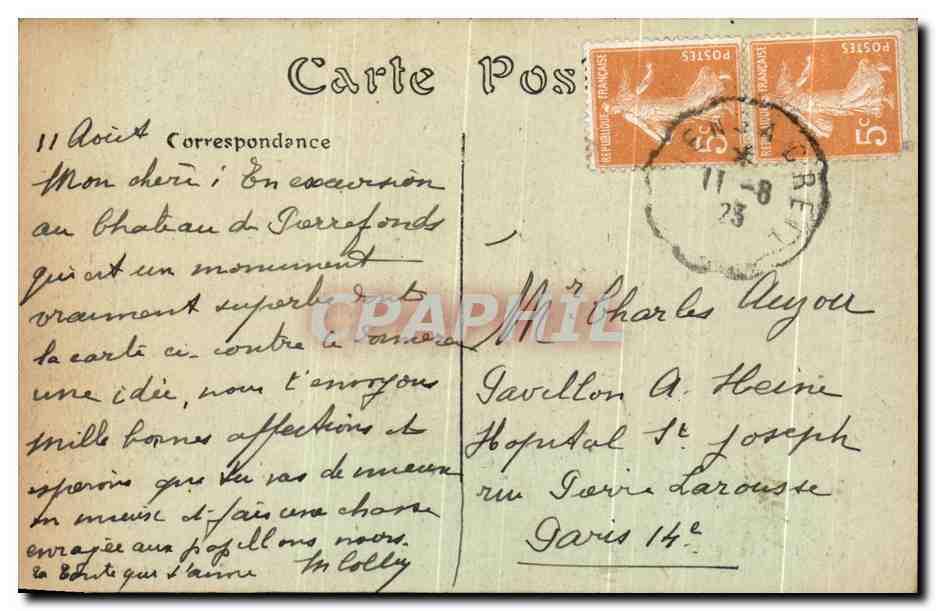 Carte Pos
POSTES
REPUBLIQUE FRANÇAISE
5c
POSTES
REPUBLIQUE FRANÇAISE
5c
A CREIL
11 - 8
23
Correspondance
11 Août
Mon chéri ; En excursion
au Chateau de Pierrefonds
qui est un monument
vraiment superbe dont
la carte ci-contre te donnera
une idée, nous t'envoyons
mille bonnes affections et
espérons que tu vas de mieux
en mieux et fais une chasse
enragée aux papillons noirs.
ta tante qui t'aime
CPAPHIL
Mr Charles Aujou
Pavillon A. Heine
Hopital St Joseph
rue Pierre Larousse
Paris 14e